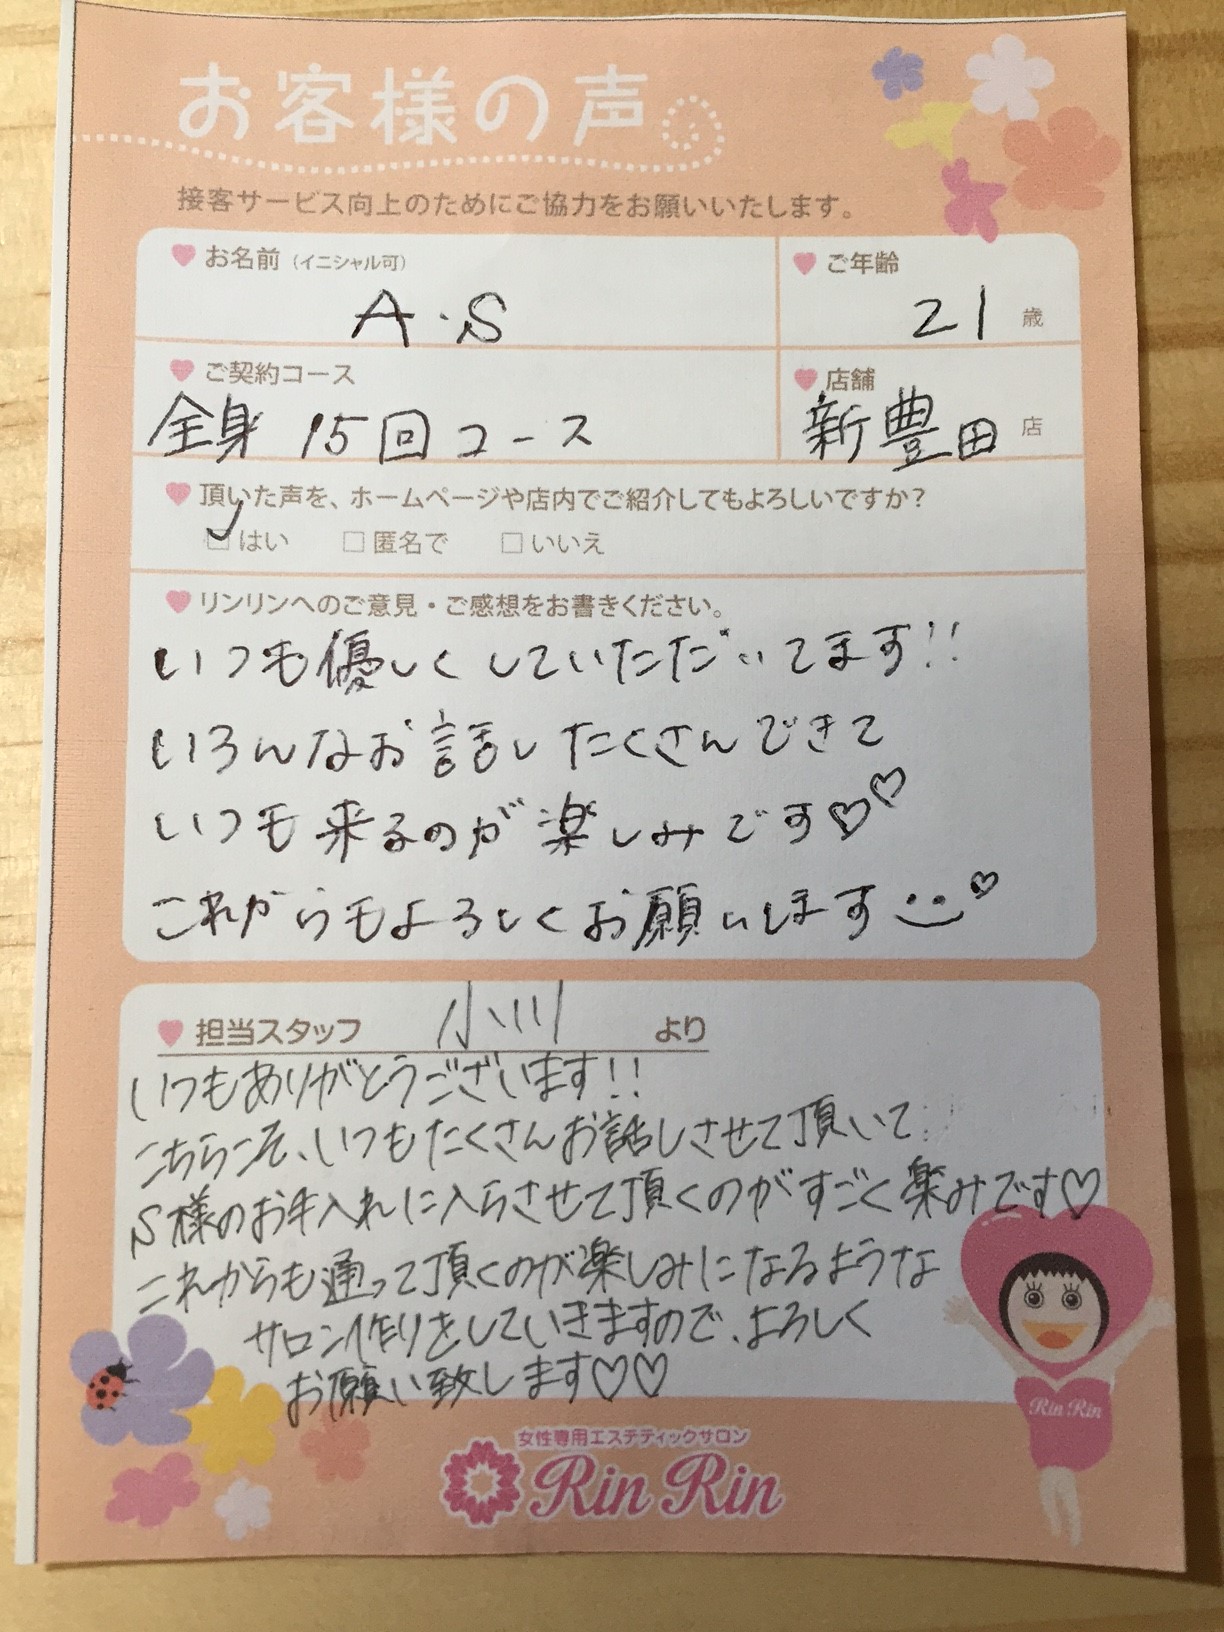 お客様の声
接客サービス向上のためにご協力をお願いいたします。
お名前（イニシャル可）
A・S
ご年齢
21歳
ご契約コース
全身 15回コース
店舗
新豊田店
頂いた声を、ホームページや店内でご紹介してもよろしいですか？
はい □匿名で □いいえ
リンリンへのご意見・ご感想をお書きください。
いつも優しくしていただいてます!!
いろんなお話したくさんできて
いつも来るのが楽しみです♡♡
これからもよろしくお願いします♡
担当スタッフ 小川 より
いつもありがとうございます!!
こちらこそ、いつもたくさんお話しさせて頂いて
S様のお手入れに入らさせて頂くのがすごく楽みです♡
これからも通って頂くのが楽しみになるような
サロン作りをしていきますので、よろしく
お願い致します♡♡
Rin Rin
女性専用エステティックサロン
Rin Rin